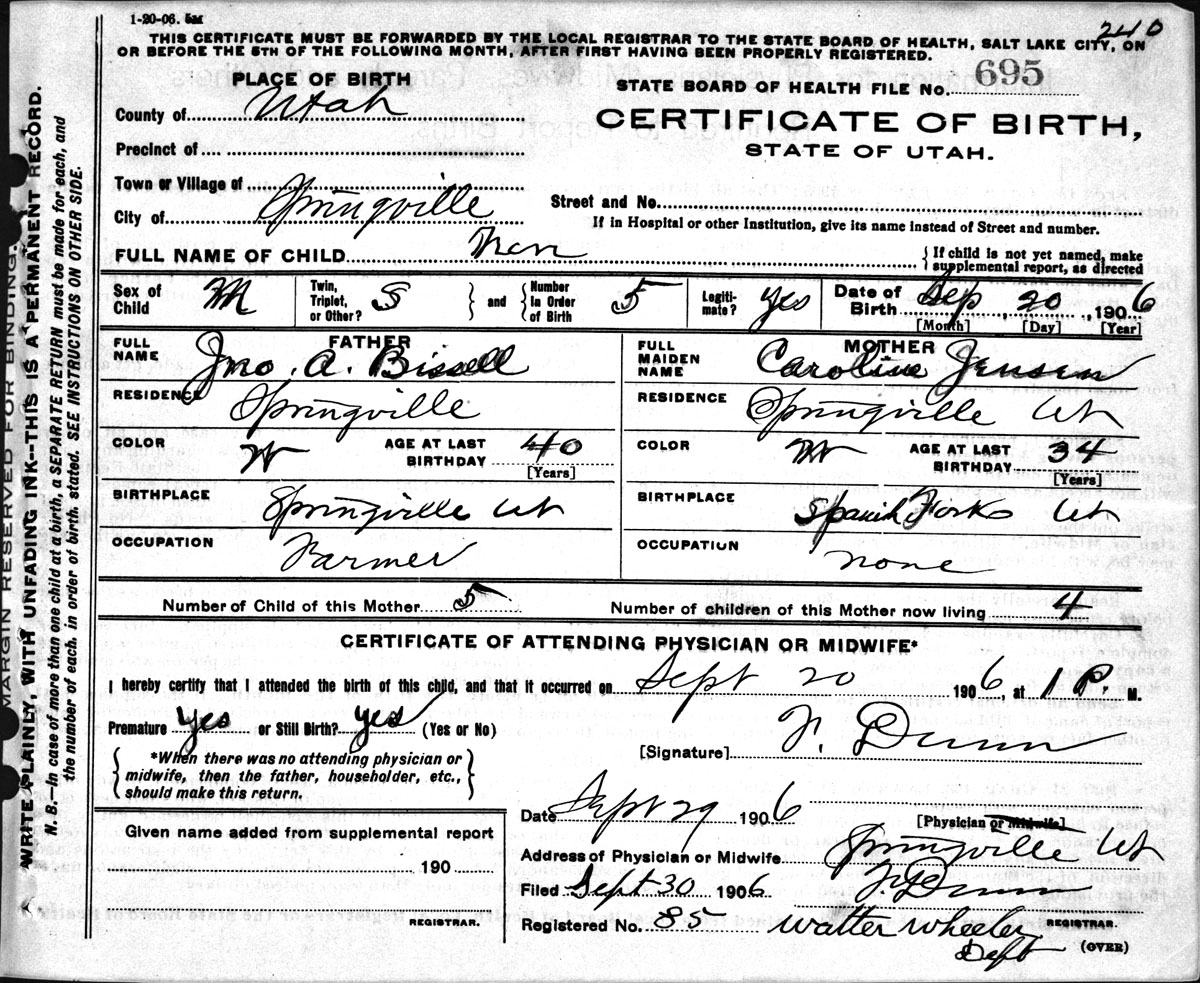 1-20-06. 5M
240
THIS CERTIFICATE MUST BE FORWARDED BY THE LOCAL REGISTRAR TO THE STATE BOARD OF HEALTH, SALT LAKE CITY, ON
OR BEFORE THE 5TH OF THE FOLLOWING MONTH, AFTER FIRST HAVING BEEN PROPERLY REGISTERED.
PLACE OF BIRTH
STATE BOARD OF HEALTH FILE No. 695
County of Utah
CERTIFICATE OF BIRTH,
STATE OF UTAH.
Precinct of
Town or Village of
City of Springville
Street and No.
If in Hospital or other Institution, give its name instead of Street and number.
FULL NAME OF CHILD
{If child is not yet named, make supplemental report, as directed
Sex of Child M
Twin, Triplet, or Other? S } and { Number in Order of Birth 5
Legitimate? yes
Date of Birth Sep, 20, 1906
[Month] [Day] [Year]
FATHER
FULL NAME Jno. A. Bissell
RESIDENCE Springville
COLOR W AGE AT LAST BIRTHDAY 40
[Years]
BIRTHPLACE Springville Ut
OCCUPATION Farmer
MOTHER
FULL MAIDEN NAME Caroline Jensen
RESIDENCE Springville Ut
COLOR W AGE AT LAST BIRTHDAY 34
[Years]
BIRTHPLACE Spanish Fork Ut
OCCUPATION none
Number of Child of this Mother 5 Number of children of this Mother now living 4
CERTIFICATE OF ATTENDING PHYSICIAN OR MIDWIFE*
I hereby certify that I attended the birth of this child, and that it occurred on Sept 20 1906, at 1 P. M.
Premature yes or Still Birth? yes (Yes or No)
[Signature] F. Dunn
{*When there was no attending physician or
midwife, then the father, householder, etc.,
should make this return.}
Date Sept 29 1906
[Physician or Midwife]
Given name added from supplemental report
190
REGISTRAR.
Address of Physician or Midwife Springville Ut
Filed Sept 30 1906 F. Dunn
REGISTRAR.
Registered No. 85 Walter Wheeler
Dept
(OVER)
MARGIN RESERVED FOR BINDING.
WRITE PLAINLY, WITH UNFADING INK--THIS IS A PERMANENT RECORD.
N. B.—In case of more than one child at a birth, a SEPARATE RETURN must be made for each, and
the number of each, in order of birth, stated. SEE INSTRUCTIONS ON OTHER SIDE.